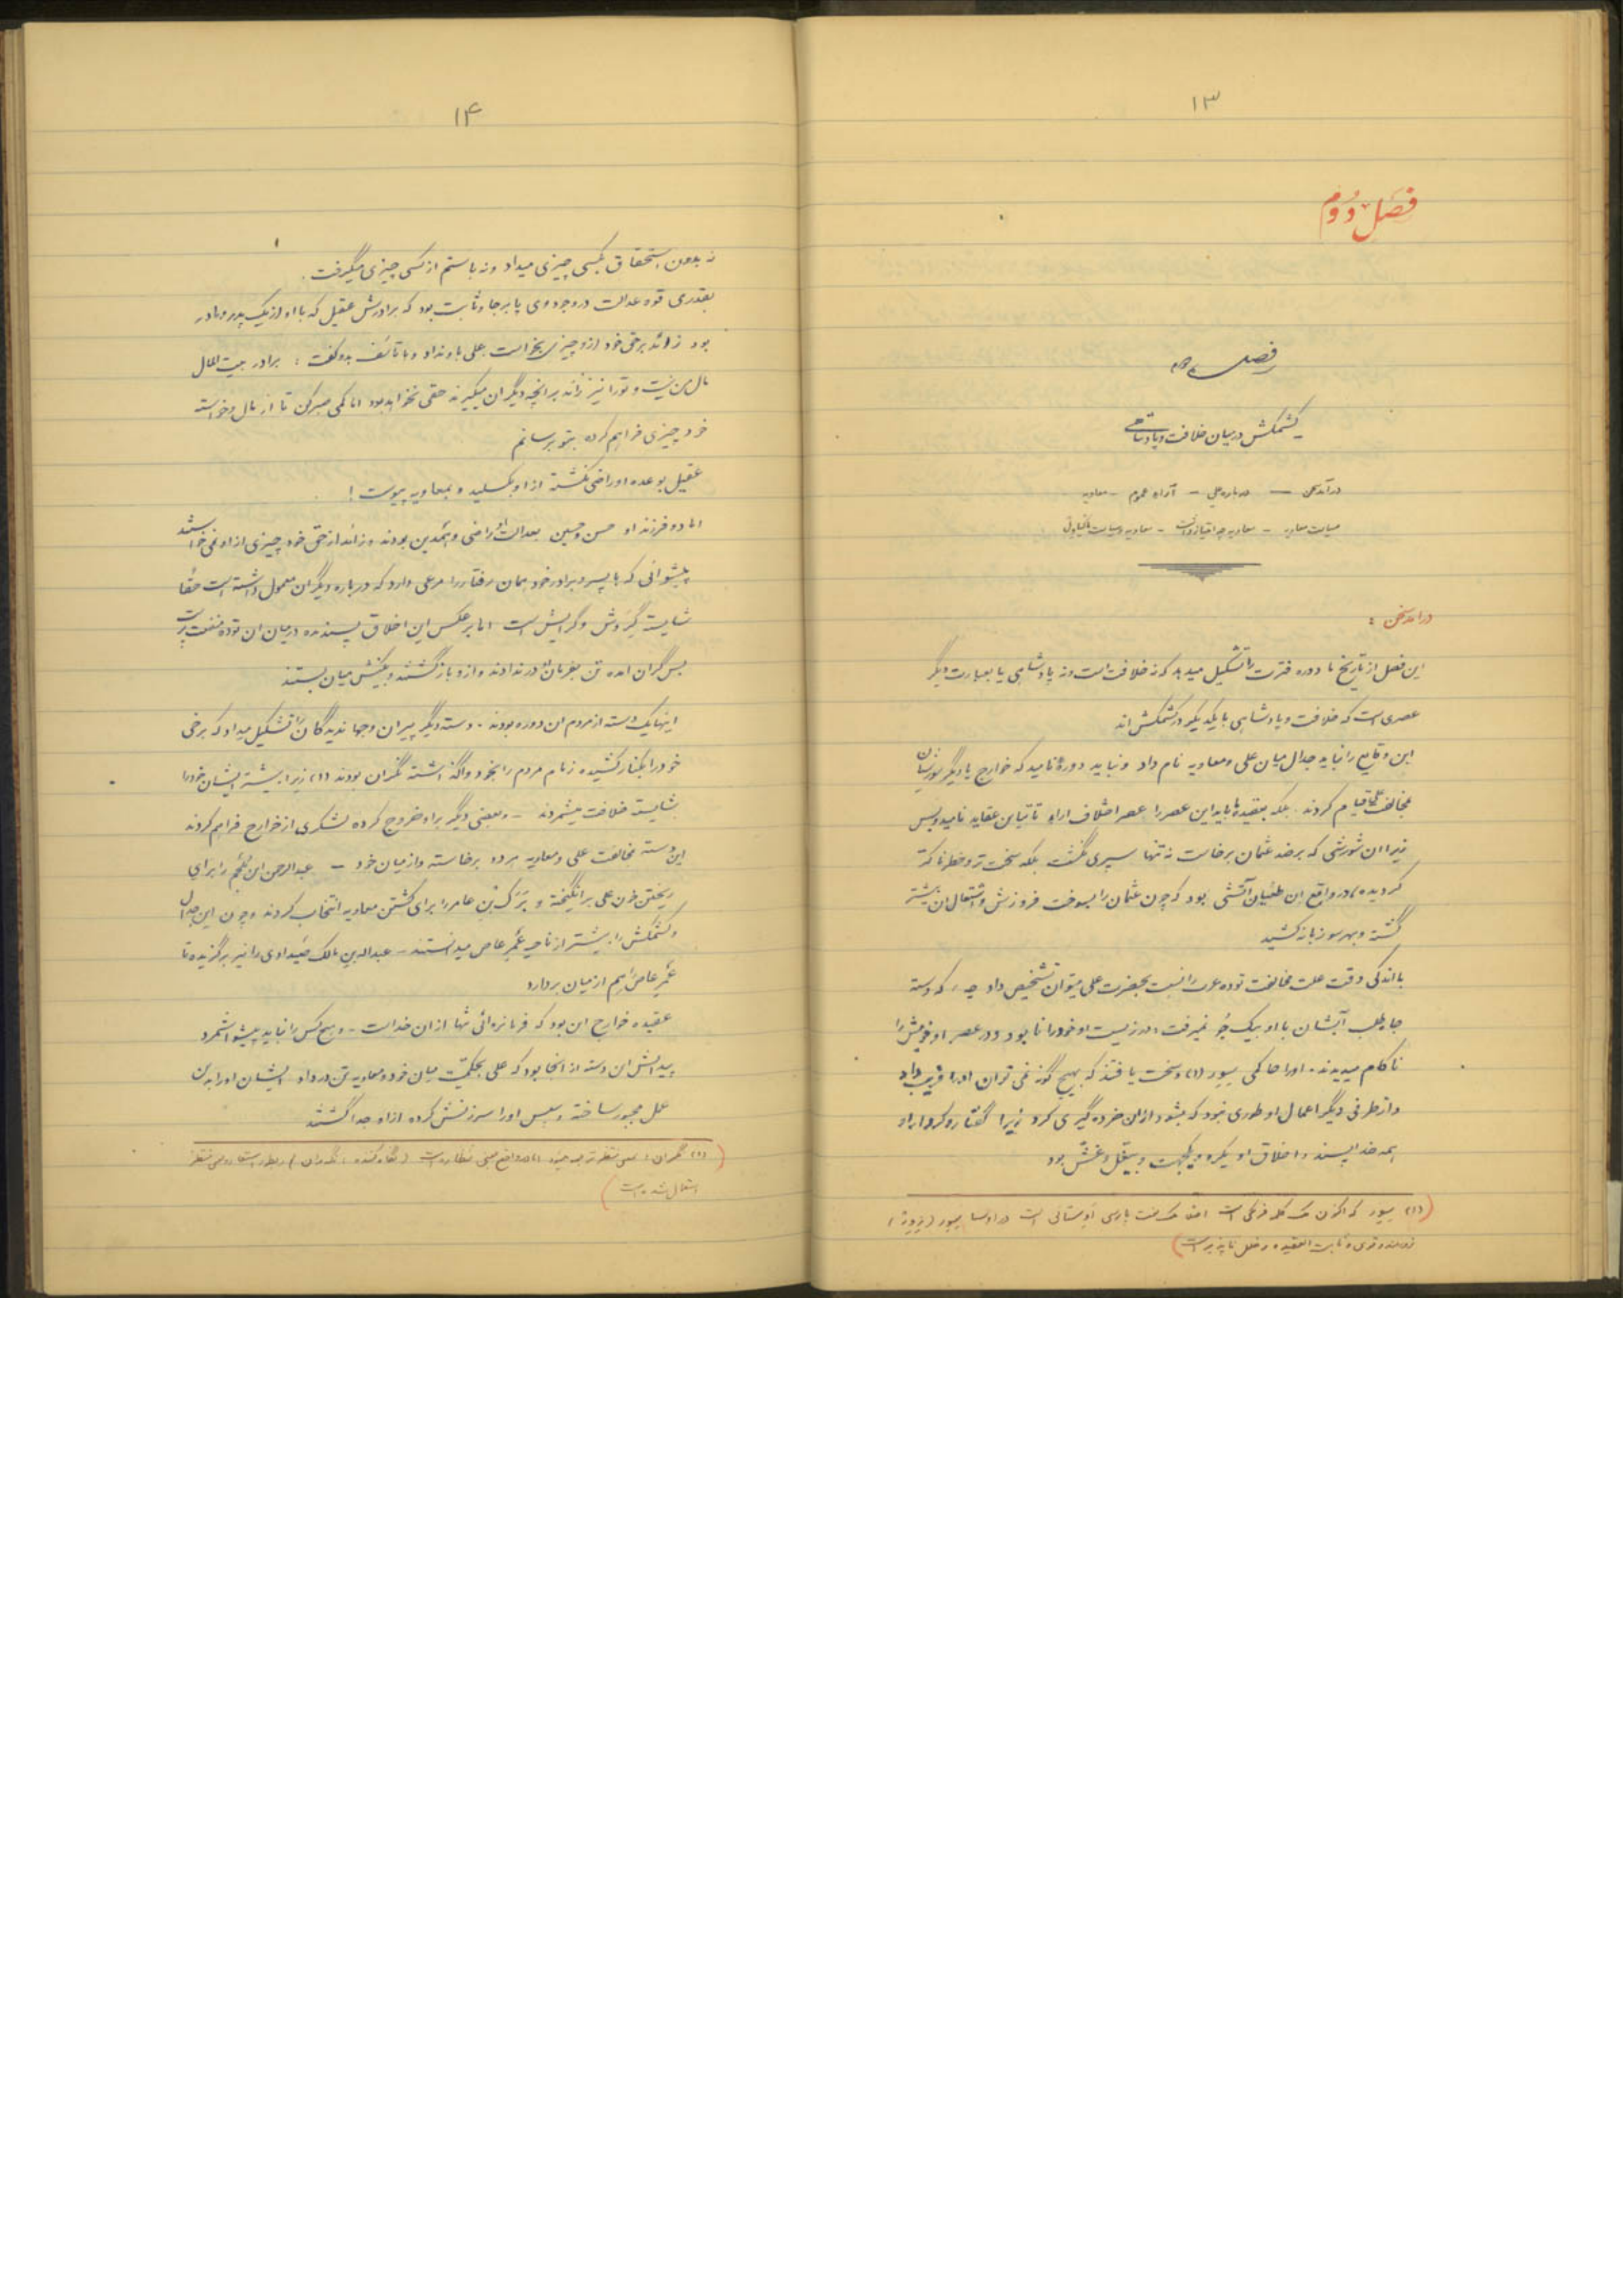 ۱۳
فصل دوّم
فصل دوم
کشمکش در میان خلافت و پادشاهی
درآمد سخن — درباره علی — آراء عموم — معاویه
سیاست معاویه — معاویه چه امتیاز داشت — معاویه و سیاست
درامد سخن :
این فصل از تاریخ ما دوره فترت را تشکیل میدهد که نه خلافت است و نه پادشاهی یا بعبارت دیگر
عصری است که خلافت و پادشاهی با یکدیگر در کشمکش اند
این وقایع را نباید جدال میان علی و معاویه نام داد و نباید دورهٔ نامید که خوارج یا دیگر شورشیان
بمخالفت علی قیام کردند . بلکه بعقیده ما باید این عصر را عصر اختلاف اراء تا تباین عقاید نامید و بس
زیرا ان شورشی که بر ضد عثمان برخاست نه تنها سپری نگشت بلکه سخت تر و خطرناکتر
گردیده ، در واقع ان طغیان آتشی بود که چون عثمان را بسوخت فروزش و اشتعال ان بیشتر
گشته و بهر سو زبانه کشید
با اندکی دقت علت مخالفت توده عرب را نسبت بحضرت علی میتوان تشخیص داد چه ، که دسته
جاه طلب آبشان با او بیک جُو نمیرفت ، در زیست او خود را نابود و در عصر او خویش را
ناکام میدیدند . او را حاکمی سِوِر (۱) و سخت یافتند که بهیچ گونه نمی توان او را فریب داد
و از طرفی دیگر اعمال او طوری نبود که بشود از ان خرده گیری کرد زیرا گفتار و کردار او
همه خدا پسند ، اخلاق او یکره و یکجهت و بیغل و غش بود
(۱) سِوِر که اکنون یک کلمه فرنگی است اصلا یک لغت پارسی اوستائی است در اوستا سِوِر
زورمند و قوی و ثابت العقیده و خلل ناپذیر است)
۱۴
نه بدون استحقاق بکسی چیزی میداد و نه با ستم از کسی چیزی میگرفت .
بقدری قوه عدالت در وجود وی پا برجا و ثابت بود که برادرش عقیل که با او از یک پدر و مادر
بود زائد بر حق خود ازو چیزی بخواست علی باو نداد و با تأسف بدو گفت : برادر بیت المال
مال من نیست و تو را نیز زائد بر انچه دیگران میگیرند حقی نخواهد بود اما کمی صبر کن تا از مال و خواسته
خود چیزی فراهم کرده بتو برسانم
عقیل بوعده او راضی نگشته از او بگسلید و بمعاویه پیوست !
اما دو فرزند او حسن و حسین بعدالت او راضی و همدین بودند و زائد از حق خود چیزی از او نمی خواستند
پیشوائی که با پسر و برادر خود همان رفتار را مرعی دارد که درباره دیگران معمول داشته است حقاً
شایسته گروش و گرایش است اما بر عکس این اخلاق پسندیده در میان ان توده منفعت پرست
بس گران امده تن بفرمان او در ندادند و ازو بازگشتند و بکینش میان بستند
اینها یک دسته از مردم ان دوره بودند . دسته دیگر پیران و جهاندیدگان را تشکیل میداد که برخی
خود را بکنار کشیده زمام مردم را بخود واگذاشته نگران بودند (۱) زیرا بیشتر ایشان خود را
شایسته خلافت میشمردند — و بعضی دیگر بر او خروج کرده لشکری از خوارج فراهم کردند
این دسته بمخالفت علی و معاویه هر دو برخاسته و از میان خود — عبدالرحمن ابن ملجم را برای
ریختن خون علی برانگیخته و بَرَک بن عامر را برای کشتن معاویه انتخاب کردند و چون این جدال
و کشمکش را بیشتر از ناحیه عَمر عاص میدانستند — عبدالله بن مالک صَیداوی را نیز برگزیده تا
عَمر عاص را هم از میان بردارد
عقیده خوارج این بود که فرمانروائی تنها از ان خداست — و هیچ کس را نباید پیشوا شمرد
پیدایش این دسته از انجا بود که علی بحکمیت میان خود و معاویه تن در داد . ایشان او را بدین
عمل مجبور ساخته و سپس او را سرزنش کرده از او جدا گشتند
(۱) نگران ، بمعنی منتظر ترجمه میشود اما در واقع بمعنی نظاره است (نگاه کننده ، نگران) و بطور استعاره بمعنی منتظر
استعمال شده است)